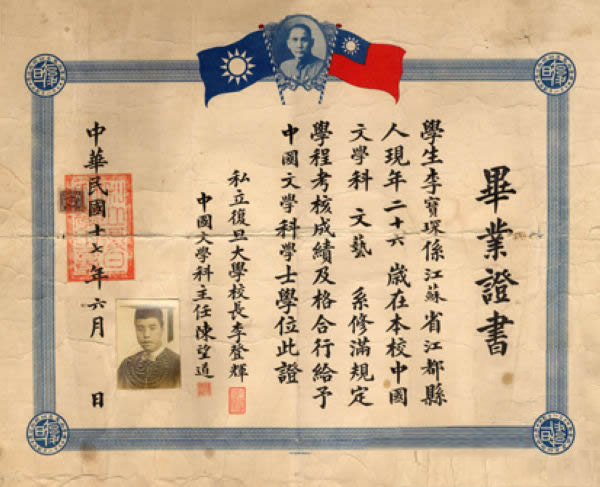 畢業證書
學生李寶琛係江蘇省江都縣
人現年二十六歲在本校中國
文學科 文藝 系修滿規定
學程考核成績及格合行給予
中國文學科學士學位此證
私立復旦大學校長李登輝
中國文學科主任陳望道
中華民國十七年六月 日